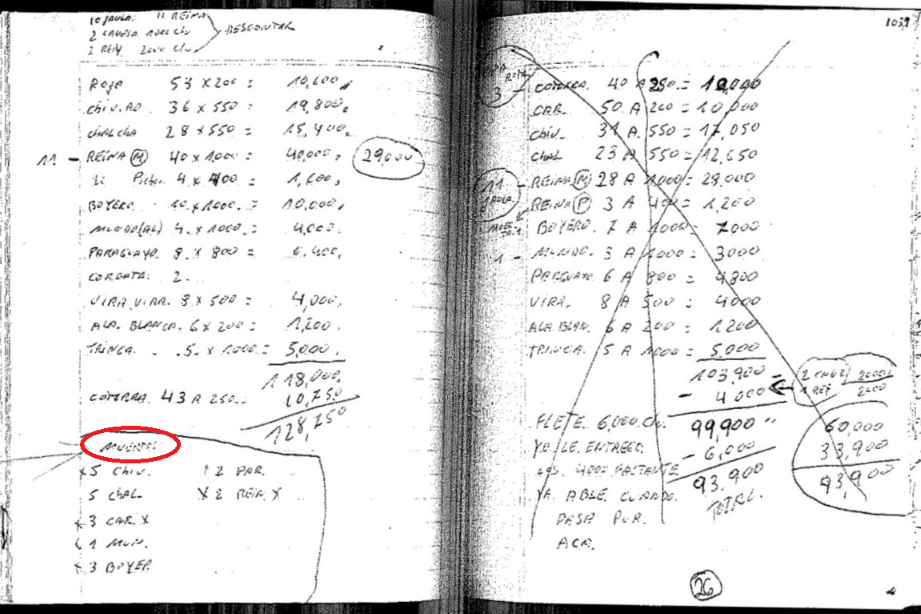 10 JAULA. 11 REINA
2 CAVESA 1000 C/U
1 REY 2000 C/U
DESCONTAR
ROJO 53 x 200 = 10,600,
CHIV. RO 36 x 550 = 19,800,
CHALCHA 28 x 550 = 15,400,
11 - REINA (M) 40 x 1000 = 40,000, 29,000
4 x 400 = 1,600,
BOYERO 10 x 1000. = 10,000,
4. x 1000. = 4,000,
PARAGUAYO 8 x 800 = 6,400,
CORBATA: 2.
VIRA VIRA. 8 x 500 = 4,000,
ALA. BLANCA. 6 x 200 = 1,200,
TRINCA. . 5. x 1000 = 5,000,
118,000,
COTORRA. 43 A 250.. 10,750
128,750
MUERTOS
5 CHIV. 2 PAR.
5 CHAL X 2 REIN. X
3 CAR. X
1 MUN.
3 BOYER
1059
3
COTORRA. 40 A 250 = 10,000
CAR. 50 A 200 = 10,000
CHIV. 31 A 550 = 17,050
CHAL 23 A 550 = 12,650
11 JAULA. - REINA (M) 28 A 1000 = 28,000
REINA (P) 3 A 400 = 1,200
BOYERO. 7 A 1000 = 7000
1 - MUNDO. 3 A 1000 = 3000
PARAGUAYO 6 A 800 = 4800
VIRA. 8 A 500 = 4000
ALA BLAN. 6 A 200 = 1200
TRINCA. 5 A 1000 = 5,000
103,900 -
- 4,000
2000
2000
FLETE 6,000 CH. 99,900 "
YA LE ENTREGO. - 6,000
LOS. 4000 RESTANTE 93,900
YA ABLE CUANDO. TOTAL.
PASA POR.
ACA.
60,000
33,900
93,900
26